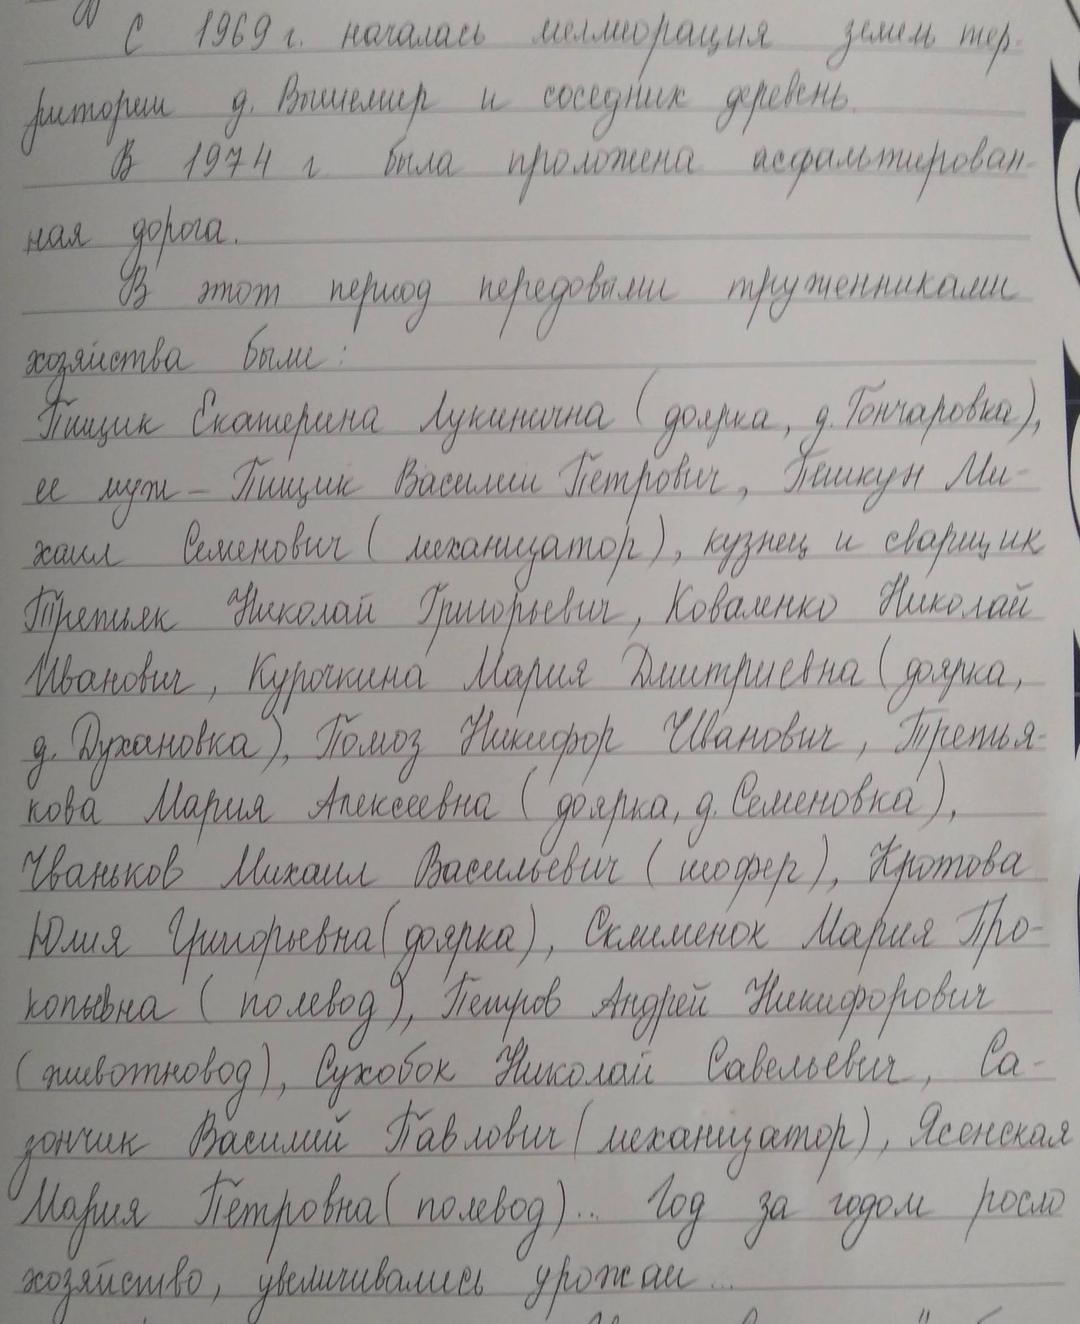 С 1969 г. началась мелиорация земель тер-
ритории д. Вышемир и соседних деревень.
В 1974 г была проложена асфальтирован-
ная дорога.
В этот период передовыми труженниками
хозяйства были:
Пищик Екатерина Лукинична (доярка, д. Гончаровка),
ее муж - Пищик Василий Петрович, Пешкун Ми-
хаил Семенович (механизатор), кузнец и сварщик
Третьяк Николай Григорьевич, Коваленко Николай
Иванович, Курочкина Мария Дмитриевна (доярка,
д. Духановка), Помоз Никифор Иванович, Третья-
кова Мария Алексеевна (доярка, д. Семеновка),
Иваньков Михаил Васильевич (шофер), Кротова
Юлия Григорьевна (доярка), Склименок Мария Про-
копьевна (полевод), Петров Андрей Никифорович
(животновод), Сухобок Николай Савельевич, Са-
зончик Василий Павлович (механизатор), Ясенская
Мария Петровна (полевод)... Год за годом росло
хозяйство, увеличивались урожаи...